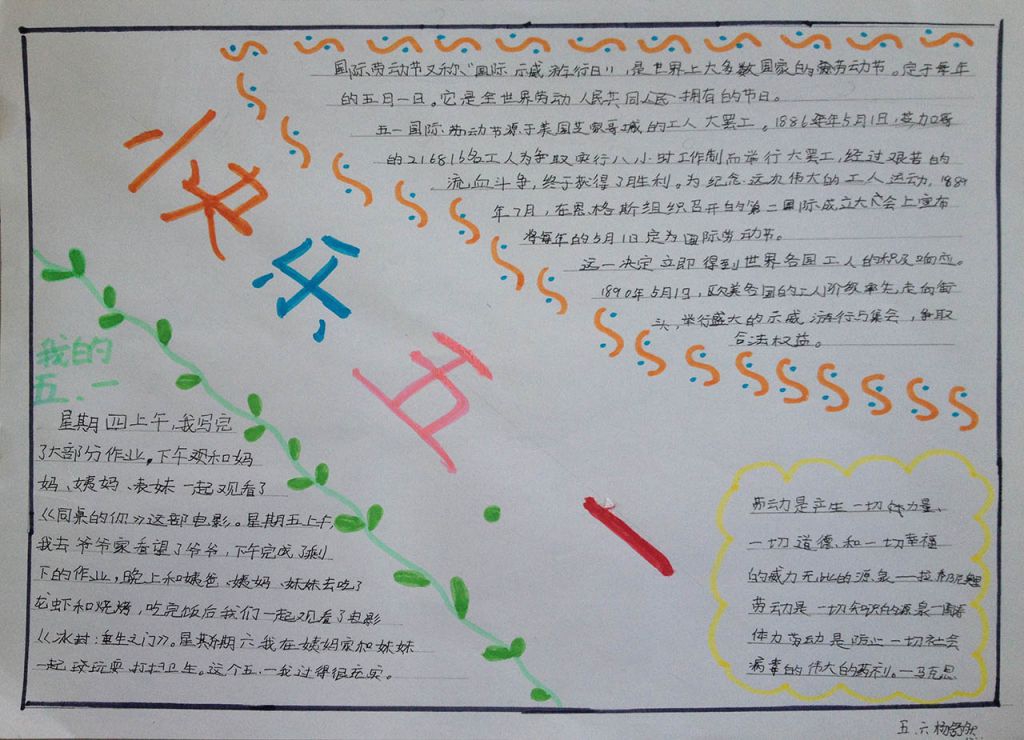 国际劳动节又称"国际示威游行日",是世界上大多数国家的劳动节。定于每年
的五月一日。它是全世界劳动人民共同人民拥有的节日。
五一国际劳动节源于美国芝家哥城的工人大罢工。1886年5月1日,芝力口哥
的216816名工人为争取实行八小时工作制而举行大罢工,经过艰苦的
流血斗争,终于获得了胜利。为纪念这次伟大的工人运动,1889
年7月,在恩格斯组织召开的第二国际成立大会上宣布
将每年的5月1日定为国际劳动节。
这一决定立即得到世界各国工人的积极响应。
1890年5月1日,欧美各国的工人阶级率先走向街
头,举行盛大的示威游行与集会,争取
合法权益。
快乐五·一
我的
五.一
星期四上午,我写完
了大部分作业。下午观和妈
妈、姨妈、表妹一起观看了
《同桌的你》这部电影。星期五上午,
我去爷爷家看望了爷爷,下午完成了剩
下的作业,晚上和姨爸、姨妈、妹妹去吃了
龙虾和烧烤,吃完饭后我们一起观看了电影
《冰封:重生之门》。星期六我在姨妈家和妹妹
一起玩耍打扫卫生。这个五.一我过得很充实。
劳动是产生一切力量、
一切道德和一切幸福
的威力无比的源泉——拉
劳动是一切知识的源泉—
体力劳动是防止一切社会
病毒的伟大的药剂。—马克思
五.六杨